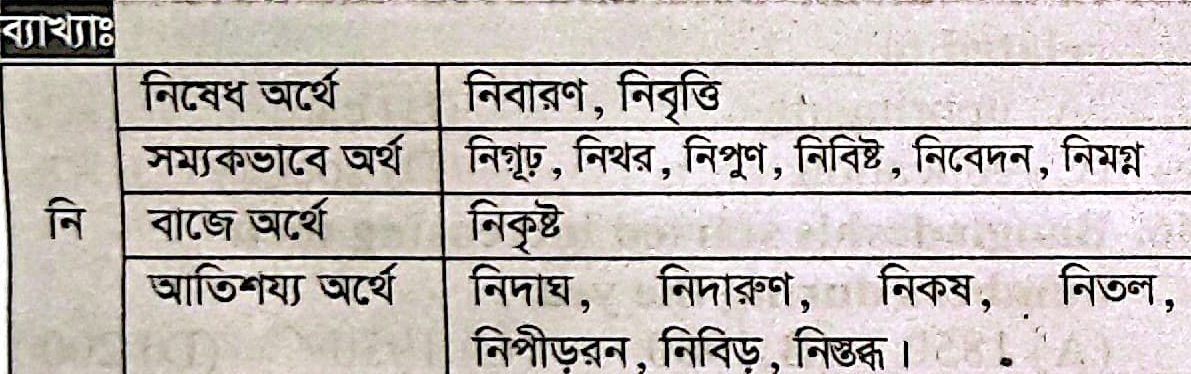 ব্যাখ্যাঃ
নিষেধ অর্থে নিবারণ, নিবৃত্তি
সম্যকভাবে অর্থ নিগূঢ়, নিথর, নিপুণ, নিবিষ্ট, নিবেদন, নিমগ্ন
নি বাজে অর্থে নিকৃষ্ট
আতিশয্য অর্থে নিদাঘ, নিদারুণ, নিকষ, নিতল,
নিপীড়রন, নিবিড়, নিস্তব্ধ।